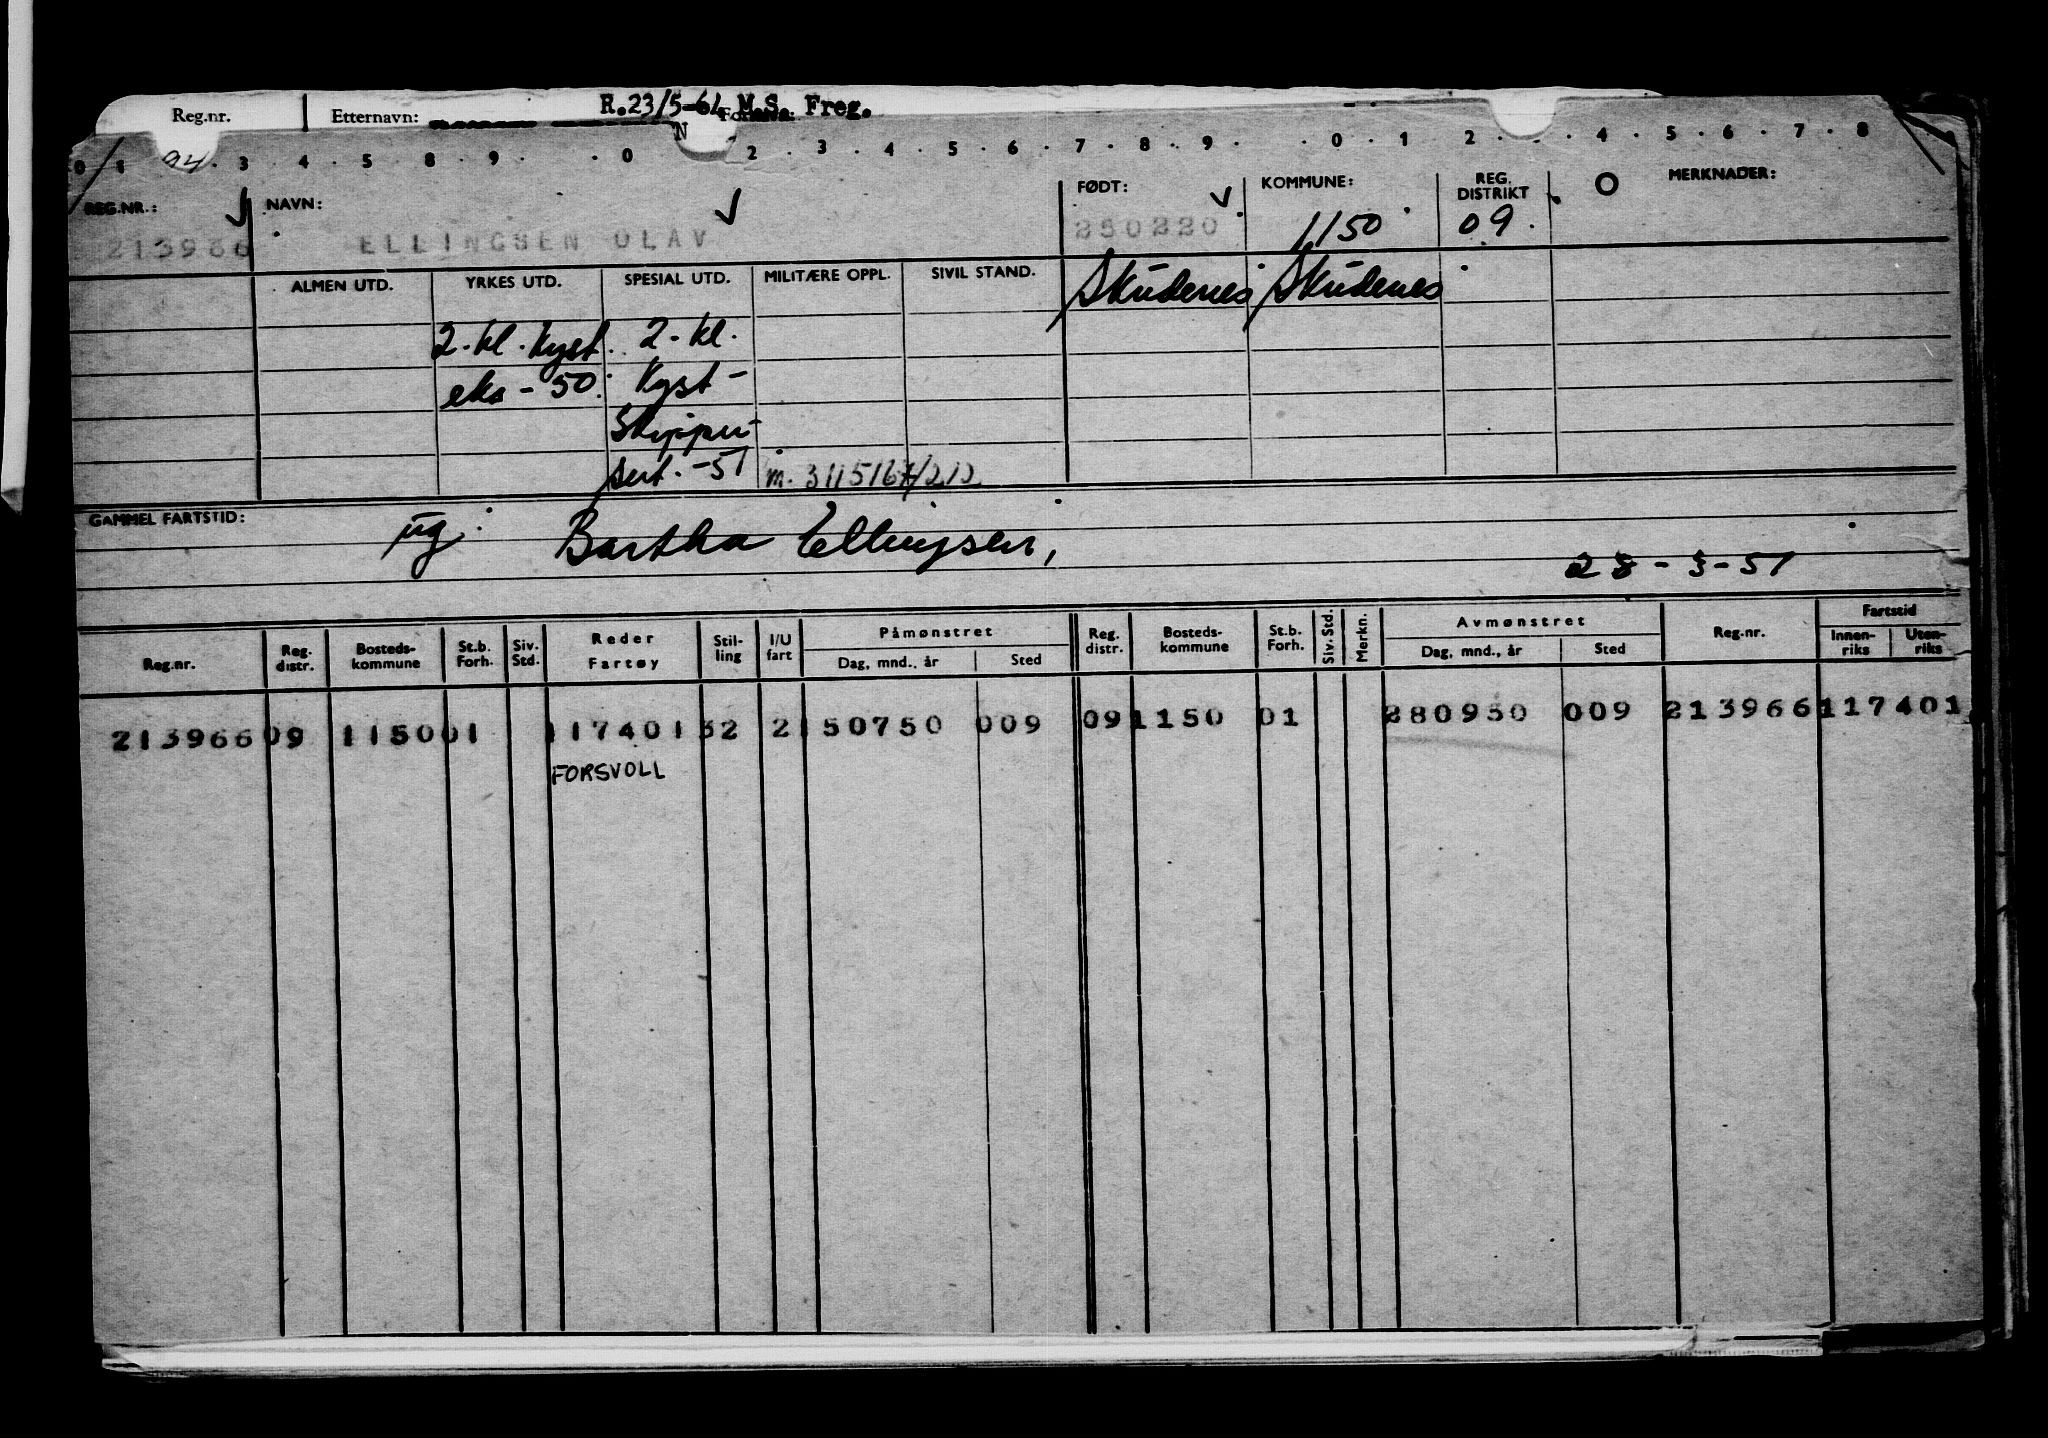 Reg.nr. Etternavn: R.23/5-64 M.S. Freg.
N
0 1 94 . 3 . 4 . 5 8 . 9 . . 0 2 . 3 . 4 . 5 . 6 . 7 . 8 . 9 . . 0 . 1 2 . . 4 . 5 . 6 . 7 . 8
REG.NR.: NAVN: FØDT: KOMMUNE: REG. DISTRIKT MERKNADER:
213966 ELLINGSEN OLAV 250220 1150 09
ALMEN UTD. YRKES UTD. SPESIAL UTD. MILITÆRE OPPL. SIVIL STAND. Skudenes Skudenes
2.kl.kyst 2-kl.
eks-50. Kyst-
Skipper-
sert.-51 m. 311516
GAMMEL FARTSTID: ug: Bartha Ellingsen,
28-3-51
Reg.nr. Reg. distr. Bosteds-kommune St.b. Forh. Siv. Std. Reder Fartøy Stil-ling I/U fart Påmønstret Dag, mnd., år Sted Reg. distr. Bosteds-kommune St.b. Forh. Siv. Std. Merkn. Avmønstret Dag, mnd., år Sted Reg.nr. Fartstid Innen-riks Uten-riks
213966 09 1150 01 117401 32 2 150750 009 09 1150 01 280950 009 213966 117401
FORSVOLL